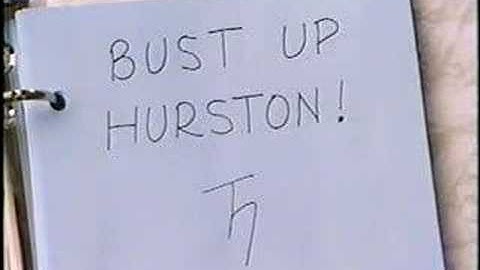 BUST UP
HURSTON!